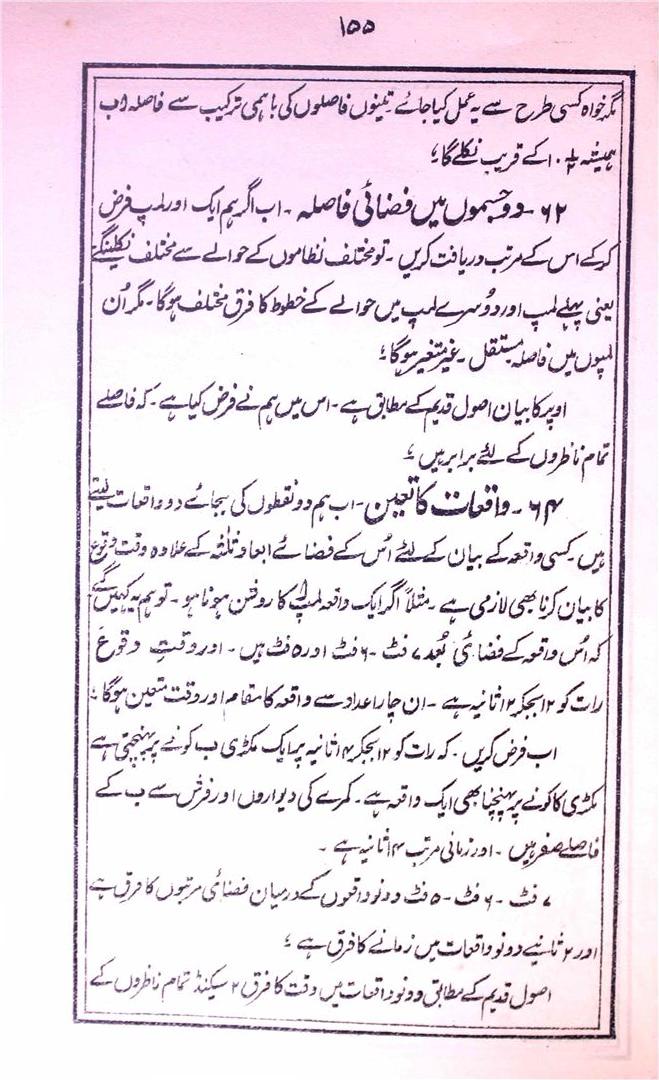 ۱۵۵
مگر خواہ کسی طرح سے یہ عمل کیا جائے تینوں فاصلوں کی باہمی ترکیب سے فاصلہ ا ب
ہمیشہ ۱۰½ کے قریب نکلے گا؛
۶۲ - دو جسموں میں فضائی فاصلہ - اب اگر ہم ایک اور لمپ فرض
کرکے اس کے مرتب دریافت کریں - تو مختلف نظاموں کے حوالے سے مختلف نکلینگے
یعنی پہلے لمپ اور دوسرے لمپ میں حوالے کے خطوط کا فرق مختلف ہوگا - مگر اُن
لمپوں میں فاصلہ مستقل - غیر متغیر ہوگا؛
اوپر کا بیان اصول قدیم کے مطابق ہے - اس میں ہم نے فرض کیا ہے - کہ فاصلے
تمام ناظروں کے لئے برابر ہیں ؛
۶۴ - واقعات کا تعین - اب ہم دو نقطوں کی بجائے دو واقعات لیتے
ہیں - کسی واقعہ کے بیان کے لئے اُس کے فضائے ابعاد ثلثہ کے علاوہ وقت وقوع
کا بیان کرنا بھی لازمی ہے - مثلاً اگر ایک واقعہ لمپ ا کا روشن ہونا ہو - تو ہم یہ کہیں گے
کہ اُس واقعہ کے فضائی بُعد ۷ فٹ - ۶ فٹ اور ۵ فٹ ہیں - اور وقتِ وقوع
رات کو ۱۲ بجکر ۱۲ ثانیہ ہے - ان چار اعداد سے واقعہ کا مقام اور وقت متعین ہوگا ؛
اب فرض کریں - کہ رات کو ۱۲ بجکر ۱۴ ثانیہ پر ایک مکڑی ب کونے پر پہنچتی ہے
مکڑی کا کونے پر پہنچنا بھی ایک واقعہ ہے - کمرے کی دیواروں اور فرش سے ب کے
فاصلے صفر ہیں - اور زمانی مرتب ۱۴ ثانیہ ہے -
۷ فٹ - ۶ فٹ - ۵ فٹ دونو واقعوں کے درمیان فضائی مرتبوں کا فرق ہے
اور ۲ ثانیے دونو واقعات میں زمانے کا فرق ہے ؛
اصول قدیم کے مطابق دونو واقعات میں وقت کا فرق ۲ سیکنڈ تمام ناظروں کے